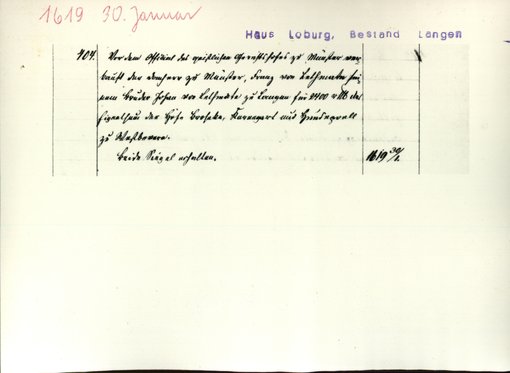 1619 30. Januar
Haus Loburg, Bestand Langen
404. Vor dem Official des geistlichen Gerichtshofes zu Münster ver-
kauft der Domherr zu Münster, Franz von Lethmate sei-
nem Bruder Johan von Lethmate zu Langen für 2400 das
Eigenthum der Höfe
zu Westbevern.
Beide Siegel erhalten.
1619 30/1.